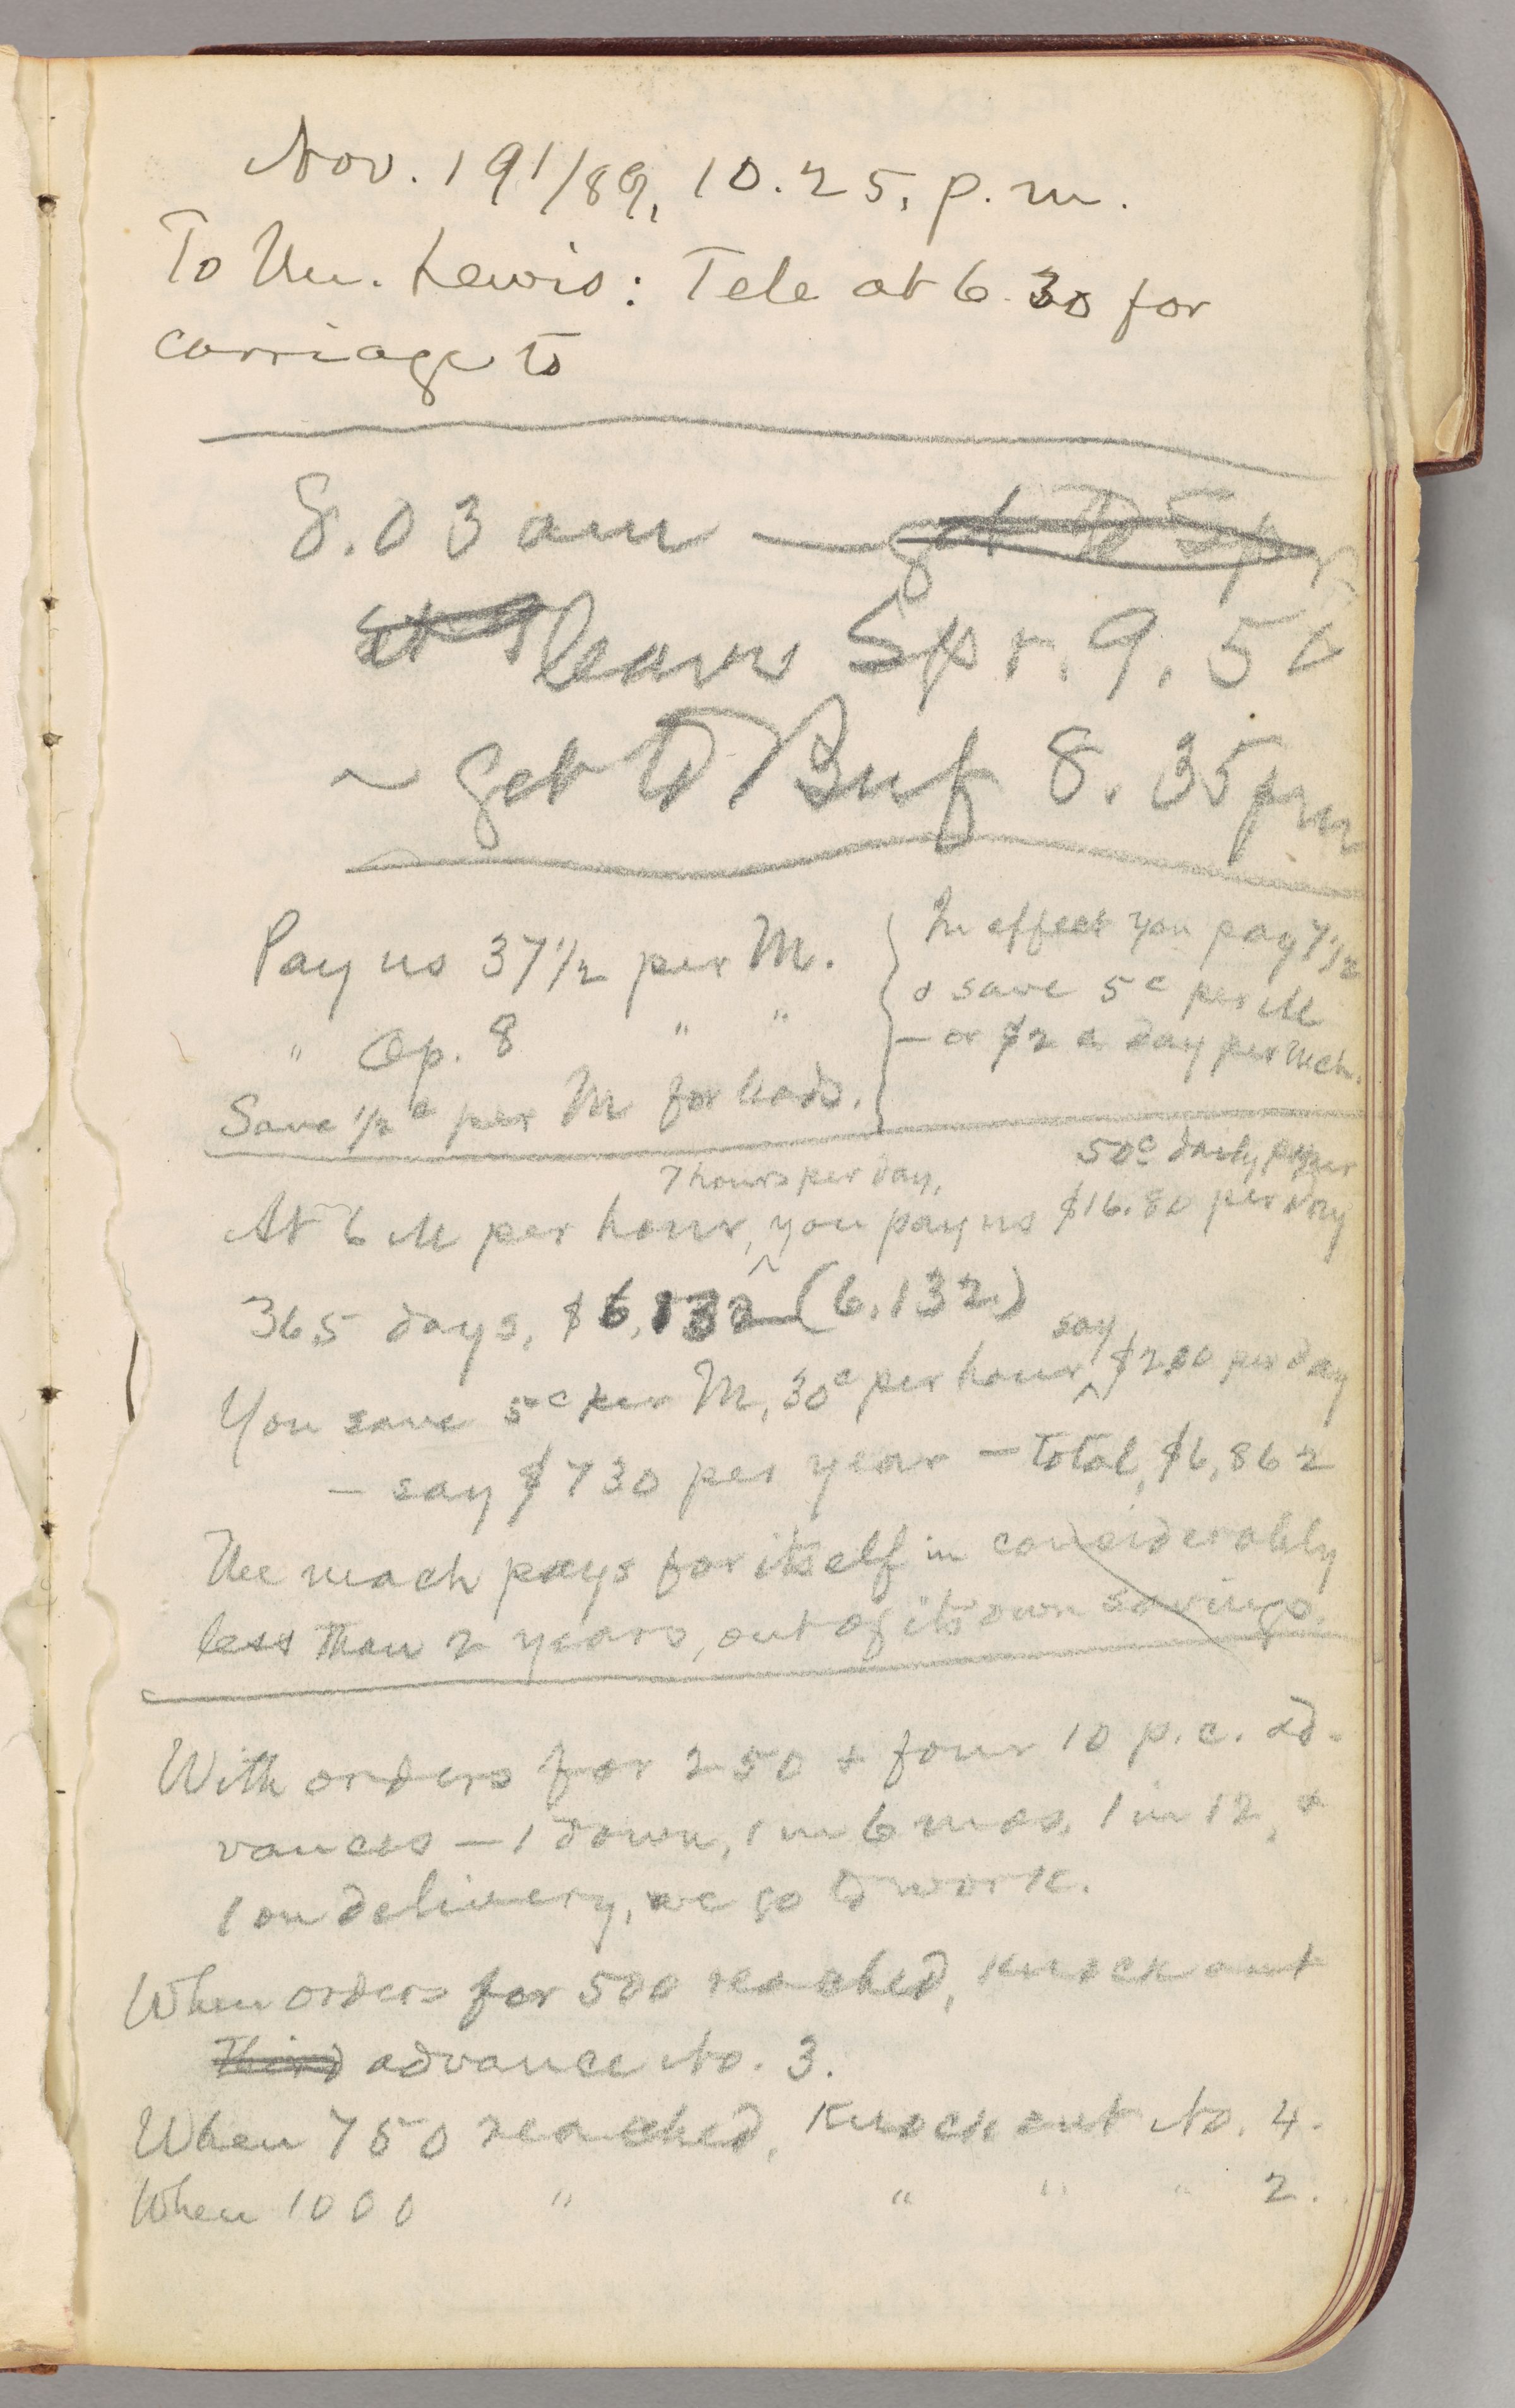 Nov. 19 1/89, 10.25, p.m.
To Mr. Lewis: Tele at 6.30 for
carriage to
8.03 am — get to Spr
leaves Spr. 9.50
~ get to Buf 8.35 pm
Pay us 37 1/2 per M.
" Op. 8 " "
Save 1/2 c per M for leads.
In effect you pay 7 1/2
& save 5c per M
— or $2 a day per mch.
50c daily per
7 hours per day,
At 6 M per hour, you pay us $16.80 per day
365 days, $6,132 (6.132)
say
You save 5c per M, 30c per hour, $2.00 per day
— say $730 per year — total, $6,862
The mach pays for itself in considerably
less than 2 years, out of its own savings.
With orders for 250 & four 10 p.c. ad-
vances — 1 down, 1 in 6 mos, 1 in 12, &
1 on delivery, we go to work.
When orders for 500 reached, knock out
Third advance No. 3.
When 750 reached, knock out No. 4.
When 1000 " " " " 2.